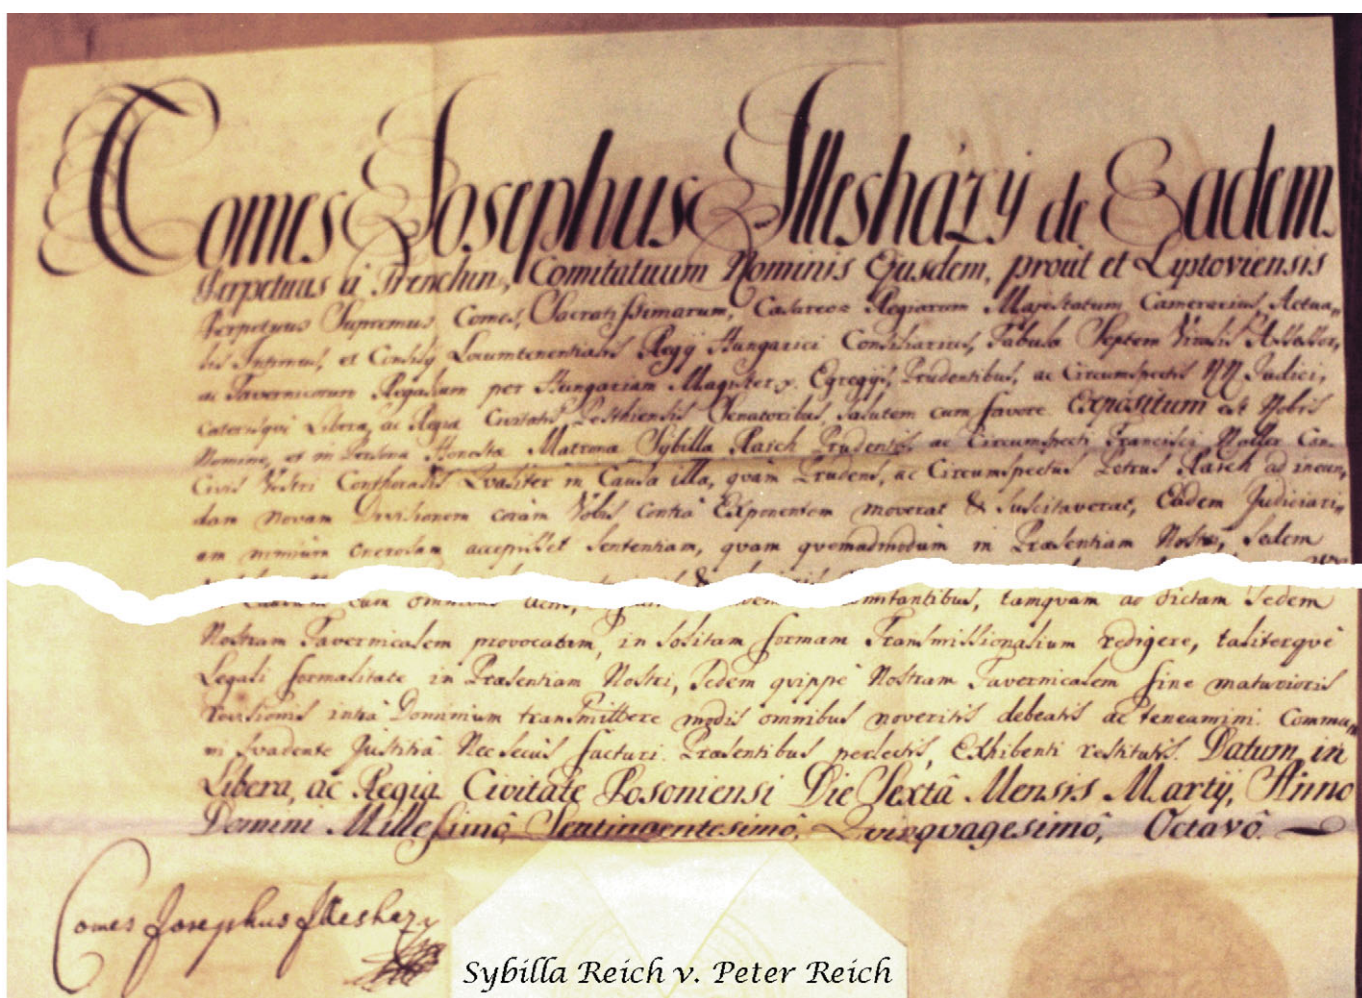 Comes Josephus Illesházÿ de Eadem.
Perpetuus à Trenchin, Comitatuum Nominis Ejusdem, prout et Lyptoviensis
Perpetuus Supremus Comes, Sacratissimarum, Cæsareo= Regiarum Majestatum Camerarius, Actua„
lis Intimus, et Consilÿ Locumtenentialis Regÿ Hungarici Consiliarius, Tabulæ Septem Viralis Assessor,
ac Tavernicorum Regalium per Hungariam Magister &. Egregÿs, Prudentibus, ac Circumspectis NN Judici,
Caterisqué Liberæ, ac Regiæ Civitatis Pesthiensis Senatoribus, salutem cum favore. Expositum est Nobis
Nomine, et in Persona Honestæ Matronæ Sybilla Raich Prudentis, ac Circumspecti Francisci
Civis Vestri Conthoralis Qvaliter in Causa illa, quàm Prudens, ac Circumspectus Petrus Raich ad ineun„
dam novam Divisionem coràm Vobis contrà Exponentem moverat & suscitaverat, Eadem Judiciari„
am nimium onerosam accepisset sententiam, quam quemadmodum in Præsentiam Nostri, Sedem
Causam cum omnibus tamquam ad dictam Sedem
Nostram Tavernicalem provocatam, in solitam formam Transmissionalium redigere, taliterquè
Legali formalitate in Præsentiam Nostri, Sedem quippè Nostram Tavernicalem fine maturioris
revisionis intrà Dominium transmittere modis omnibus noveritis debeatis ac teneamini. Commu„
ni svadente Justitiâ. Nec secus facturi. Præsentibus perlectis, Exhibenti restitutis. Datum in
Libera, ac Regia Civitate Posoniensi Die Sextâ Mensis Martÿ, Anno
Domini Millesimô, Septingentesimô, Quinquagesimô, Octavô.
Comes Josephus Illesházy
Sybilla Reich v. Peter Reich